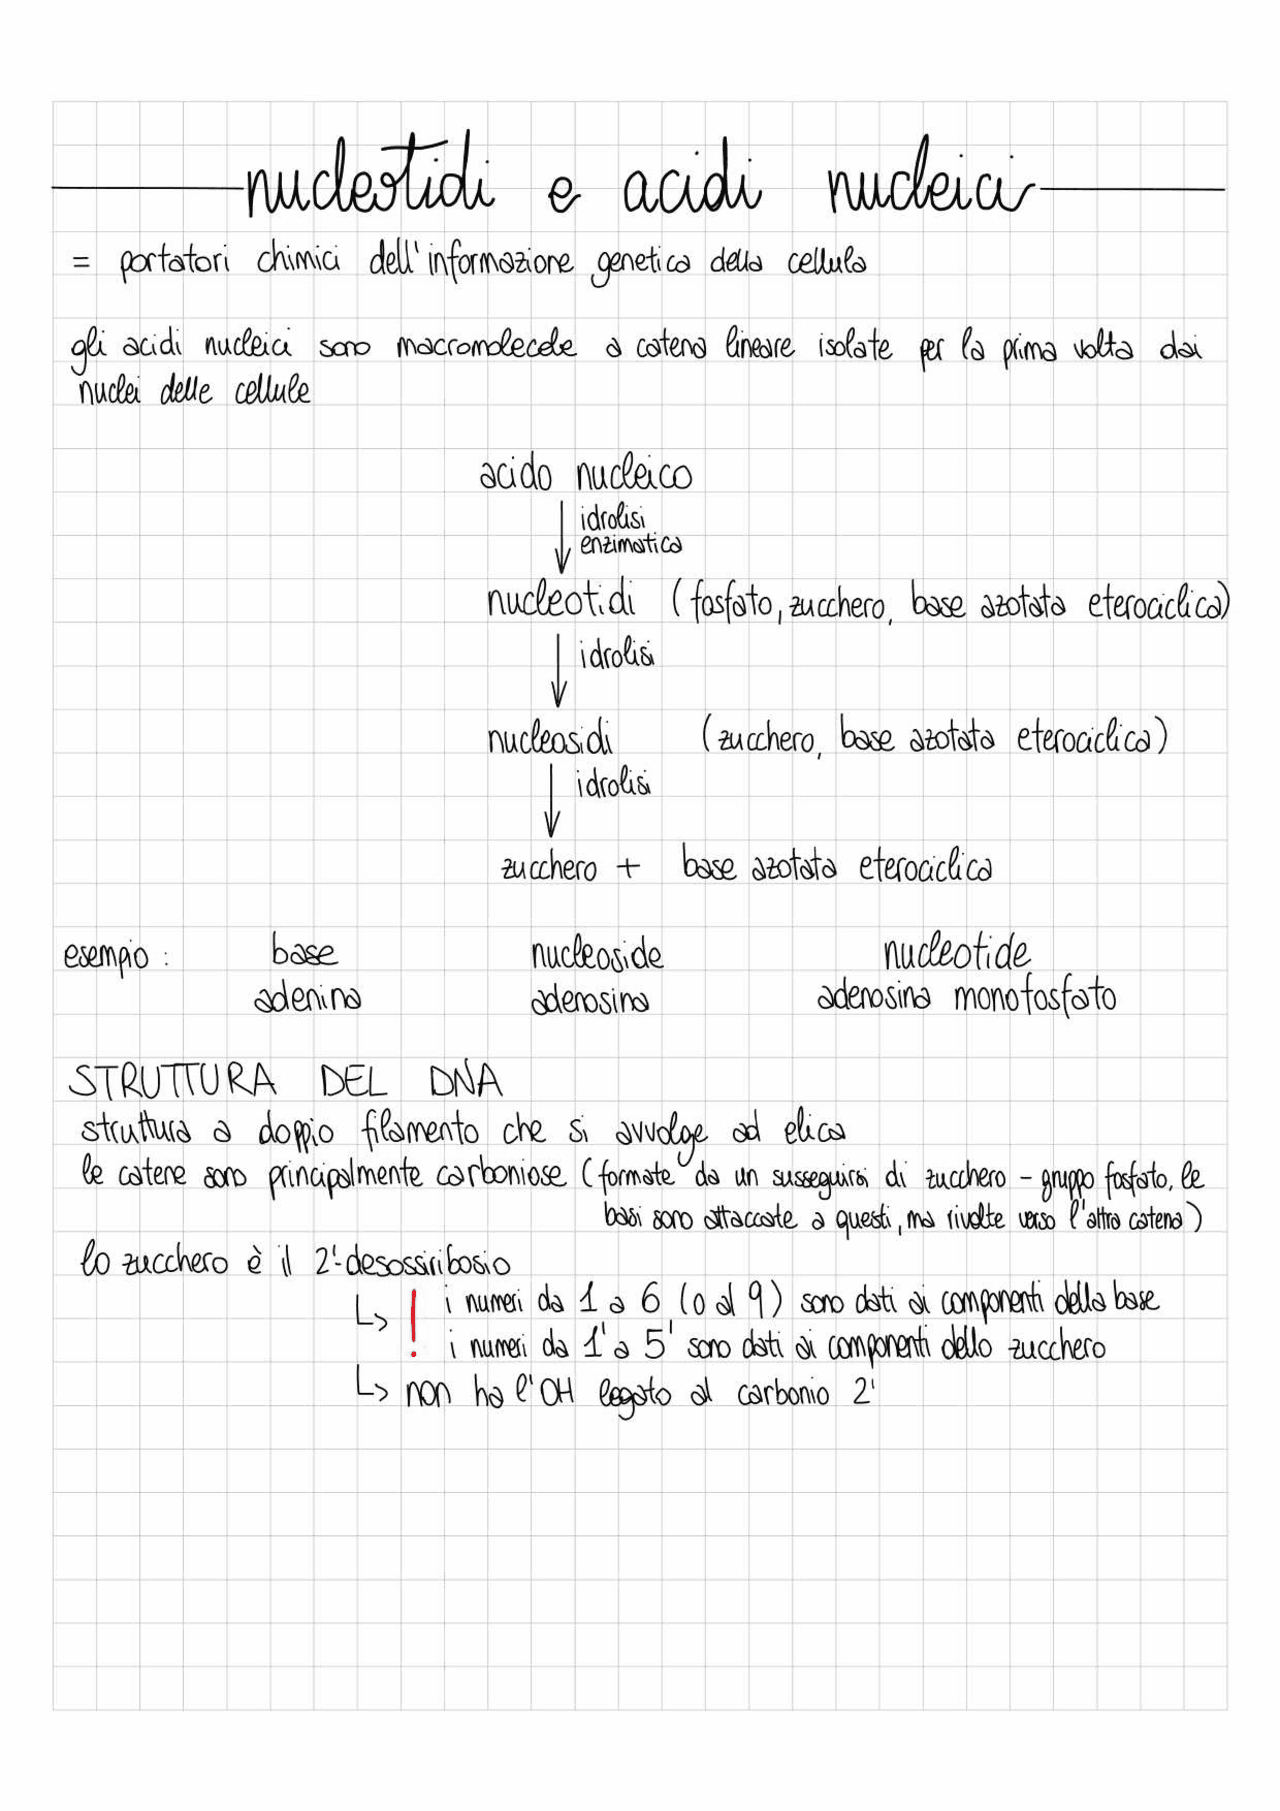 nucleotidi e acidi nucleici
= portatori chimici dell'informazione genetica della cellula
gli acidi nucleici sono macromolecole a catena lineare isolate per la prima volta dai
nuclei delle cellule
acido nucleico
idrolisi
enzimatica
nucleotidi (fosfato, zucchero, base azotata eterociclica)
idrolisi
nucleosidi (zucchero, base azotata eterociclica)
idrolisi
zucchero + base azotata eterociclica
esempio : base nucleoside nucleotide
adenina adenosina adenosina monofosfato
STRUTTURA DEL DNA
struttura a doppio filamento che si avvolge ad elica
le catene sono principalmente carboniose (formate da un susseguirsi di zucchero - gruppo fosfato, le
basi sono attaccate a questi, ma rivolte verso l'altra catena)
lo zucchero è il 2'-desossiribosio
↳ ! i numeri da 1 a 6 (o al 9) sono dati ai componenti della base
i numeri da 1' a 5' sono dati ai componenti dello zucchero
↳ non ha l'OH legato al carbonio 2'